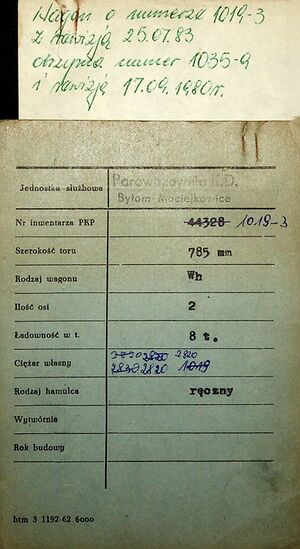 Wagon o numerze 1019-3
z rewizją 25.07.83
otrzymał numer 1035-9
i rewizją 17.09.1980r.
Jednostka służbowa Parowozownia K.D.
Bytom-Maciejkowice
Nr inwentarza PKP 44328 1019-3
Szerokość toru 785 mm
Rodzaj wagonu Wh
Ilość osi 2
Ładowność w t. 8 t.
2820 2820
Ciężar własny 2830 2820 1019
Rodzaj hamulca ręczny
Wytwórnia
Rok budowy
btm 3 1192-62 6000